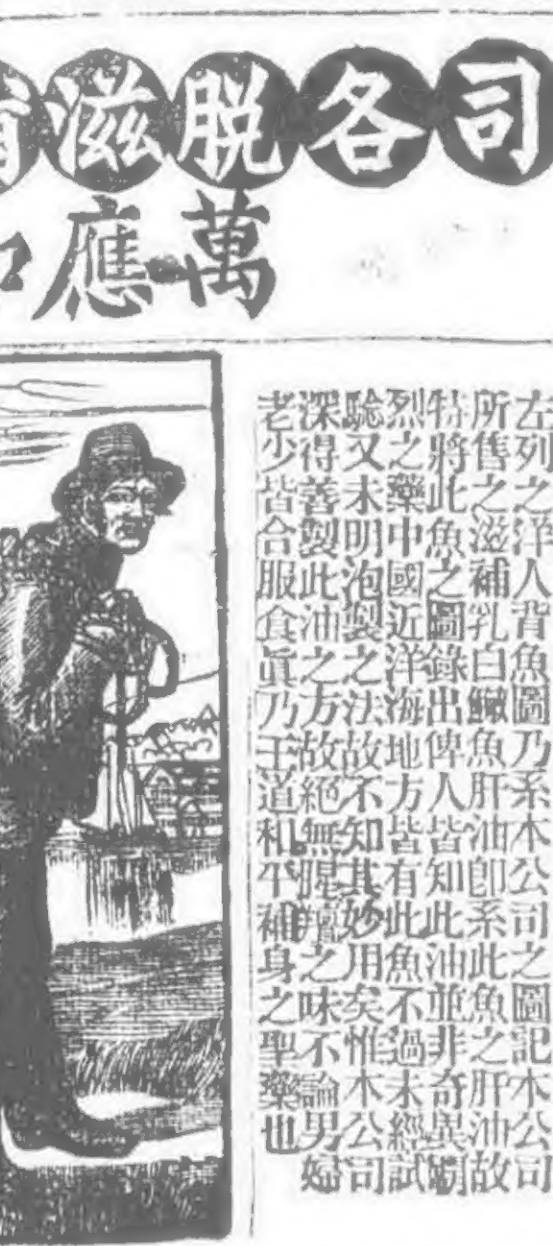 司各脱滋
萬應
左列之洋人背魚圖乃系本公司之圖記本公司
所售之滋補乳白鰵魚肝油卽系此魚之肝油故
特將此魚之圖錄出俾人皆知此油並非奇異霸
烈之藥中國近洋海地方皆有此魚不過未經試
騐又未明泡製之法故不知其妙用矣惟本公司
深得善製此油之方故絕無腥羶之味不論男婦
老少皆合服食眞乃王道和平補身之聖藥也